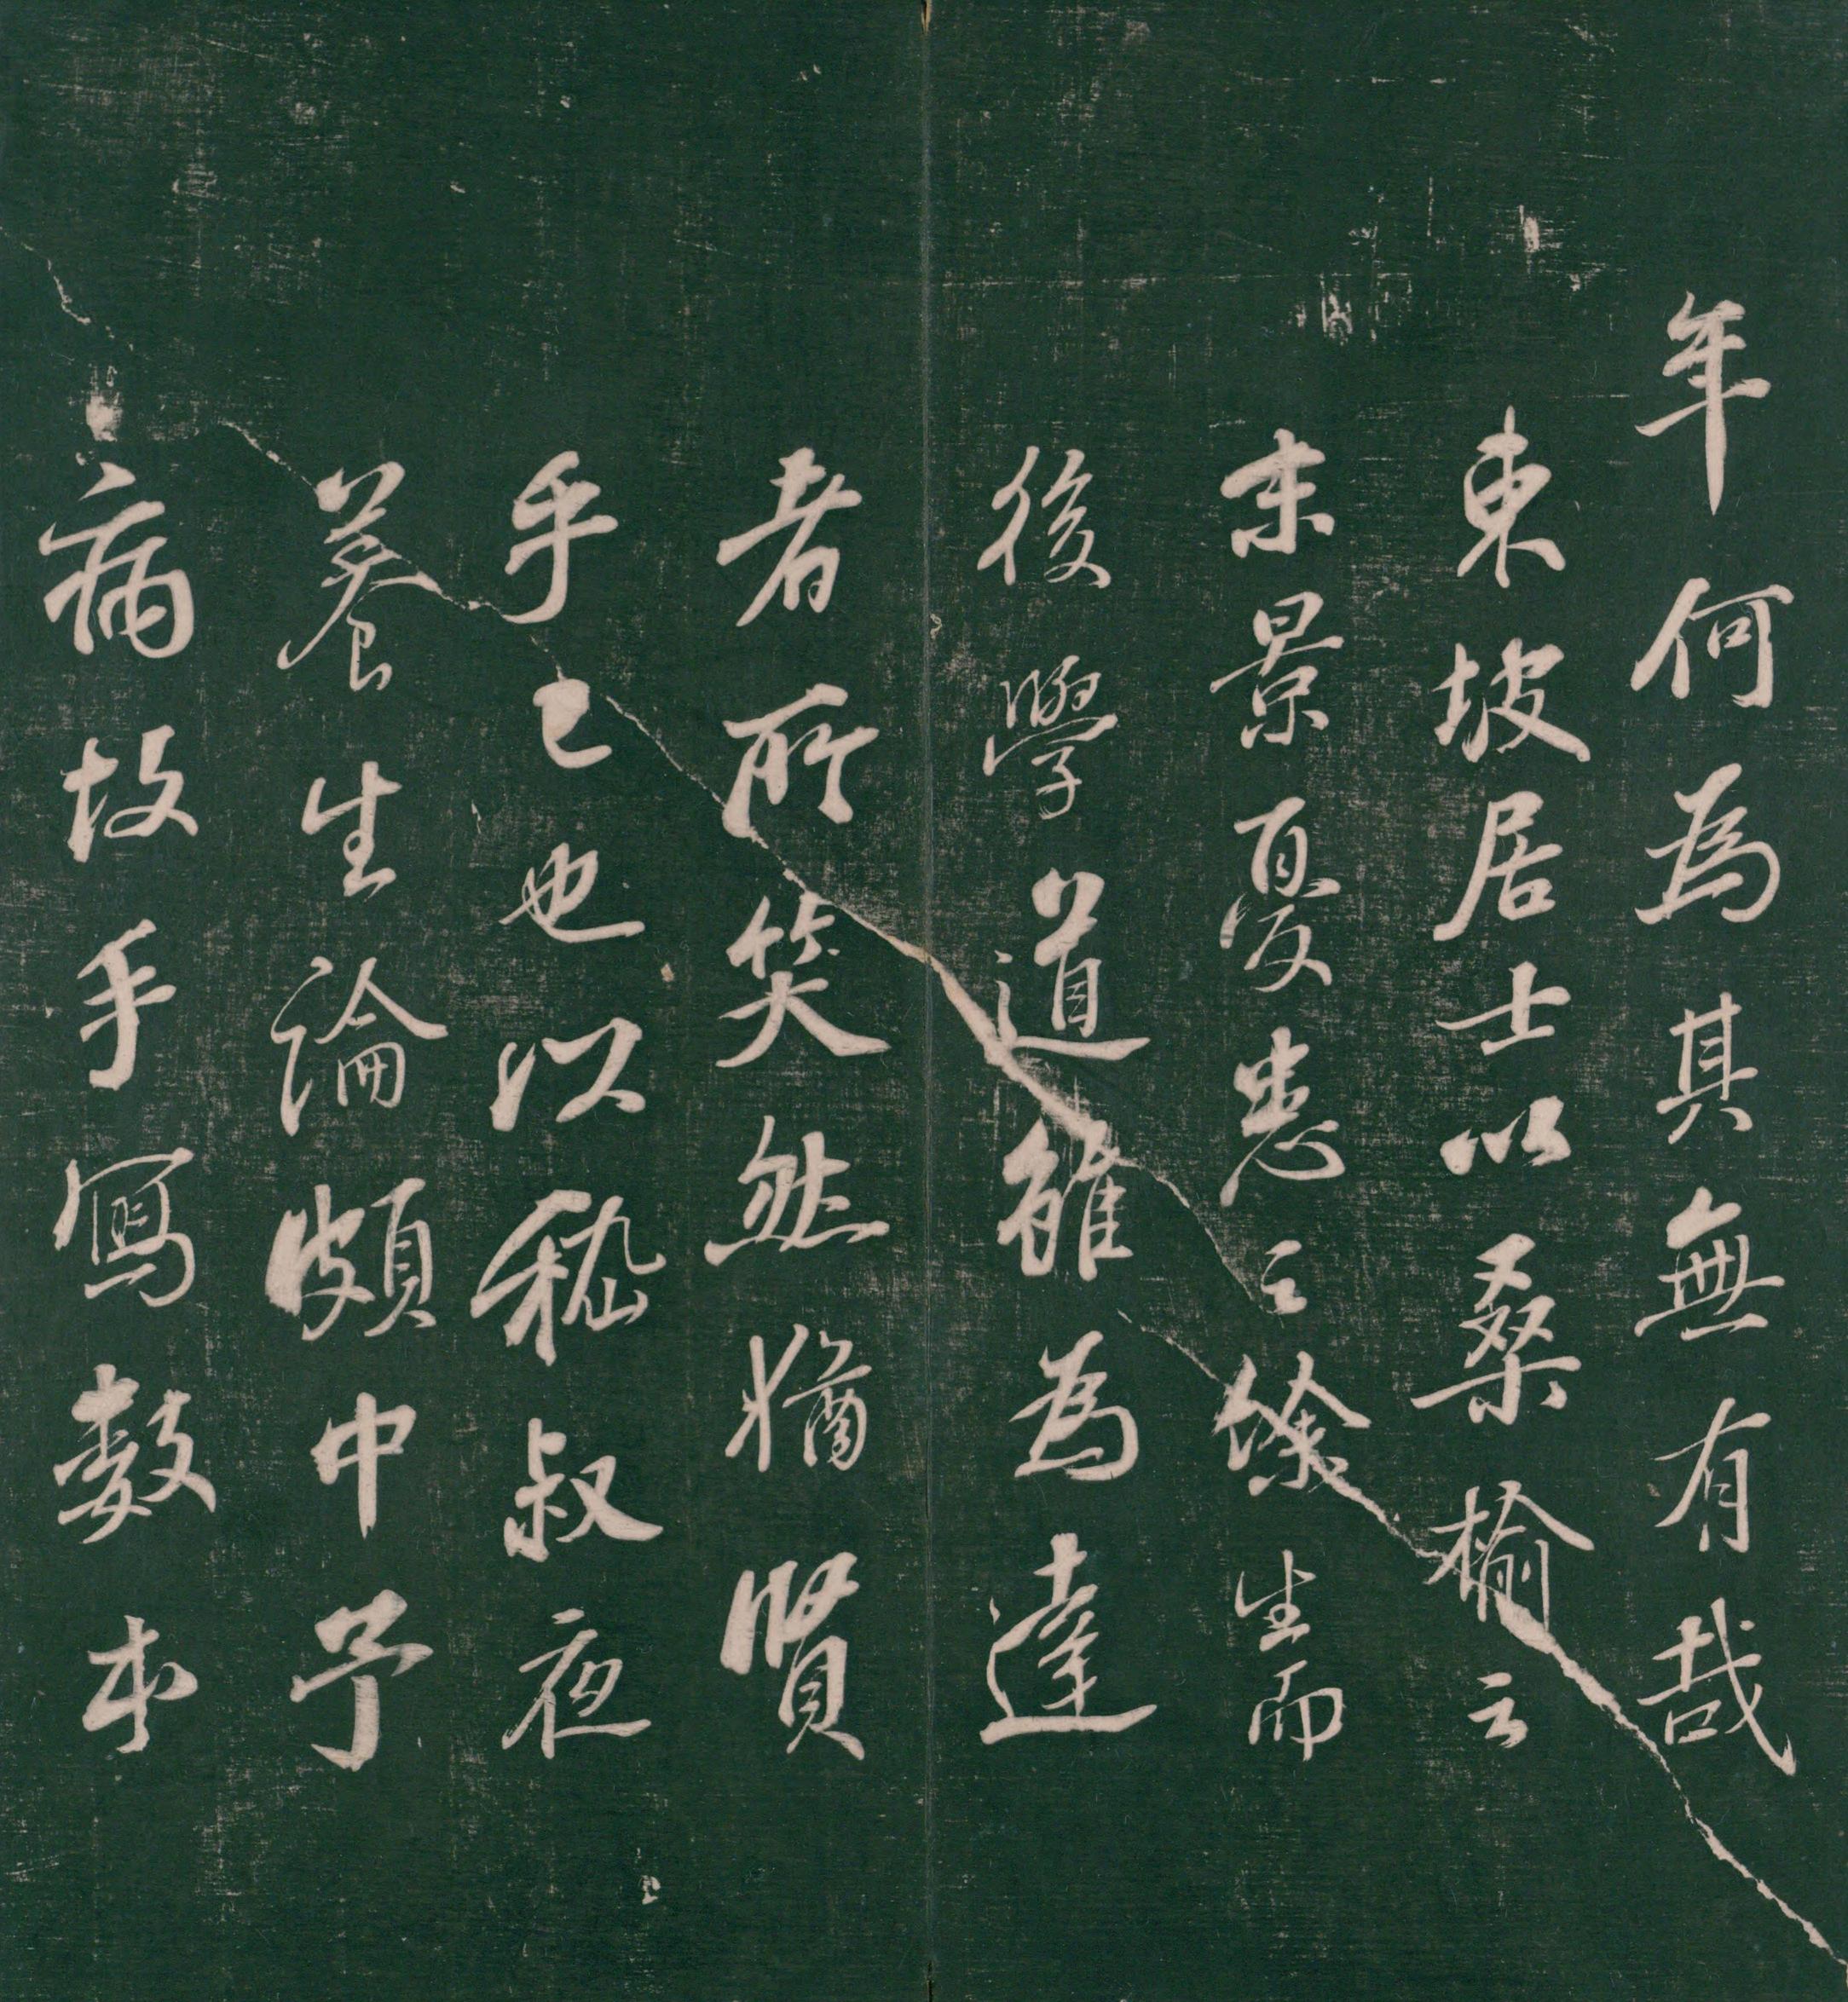 年何為其無有哉
東坡居士以桑榆云
末景憂患之餘生而
後學道雖為達
者所笑然猶賢
乎已也以嵇叔夜
養生論頗中予
病故手寫數本